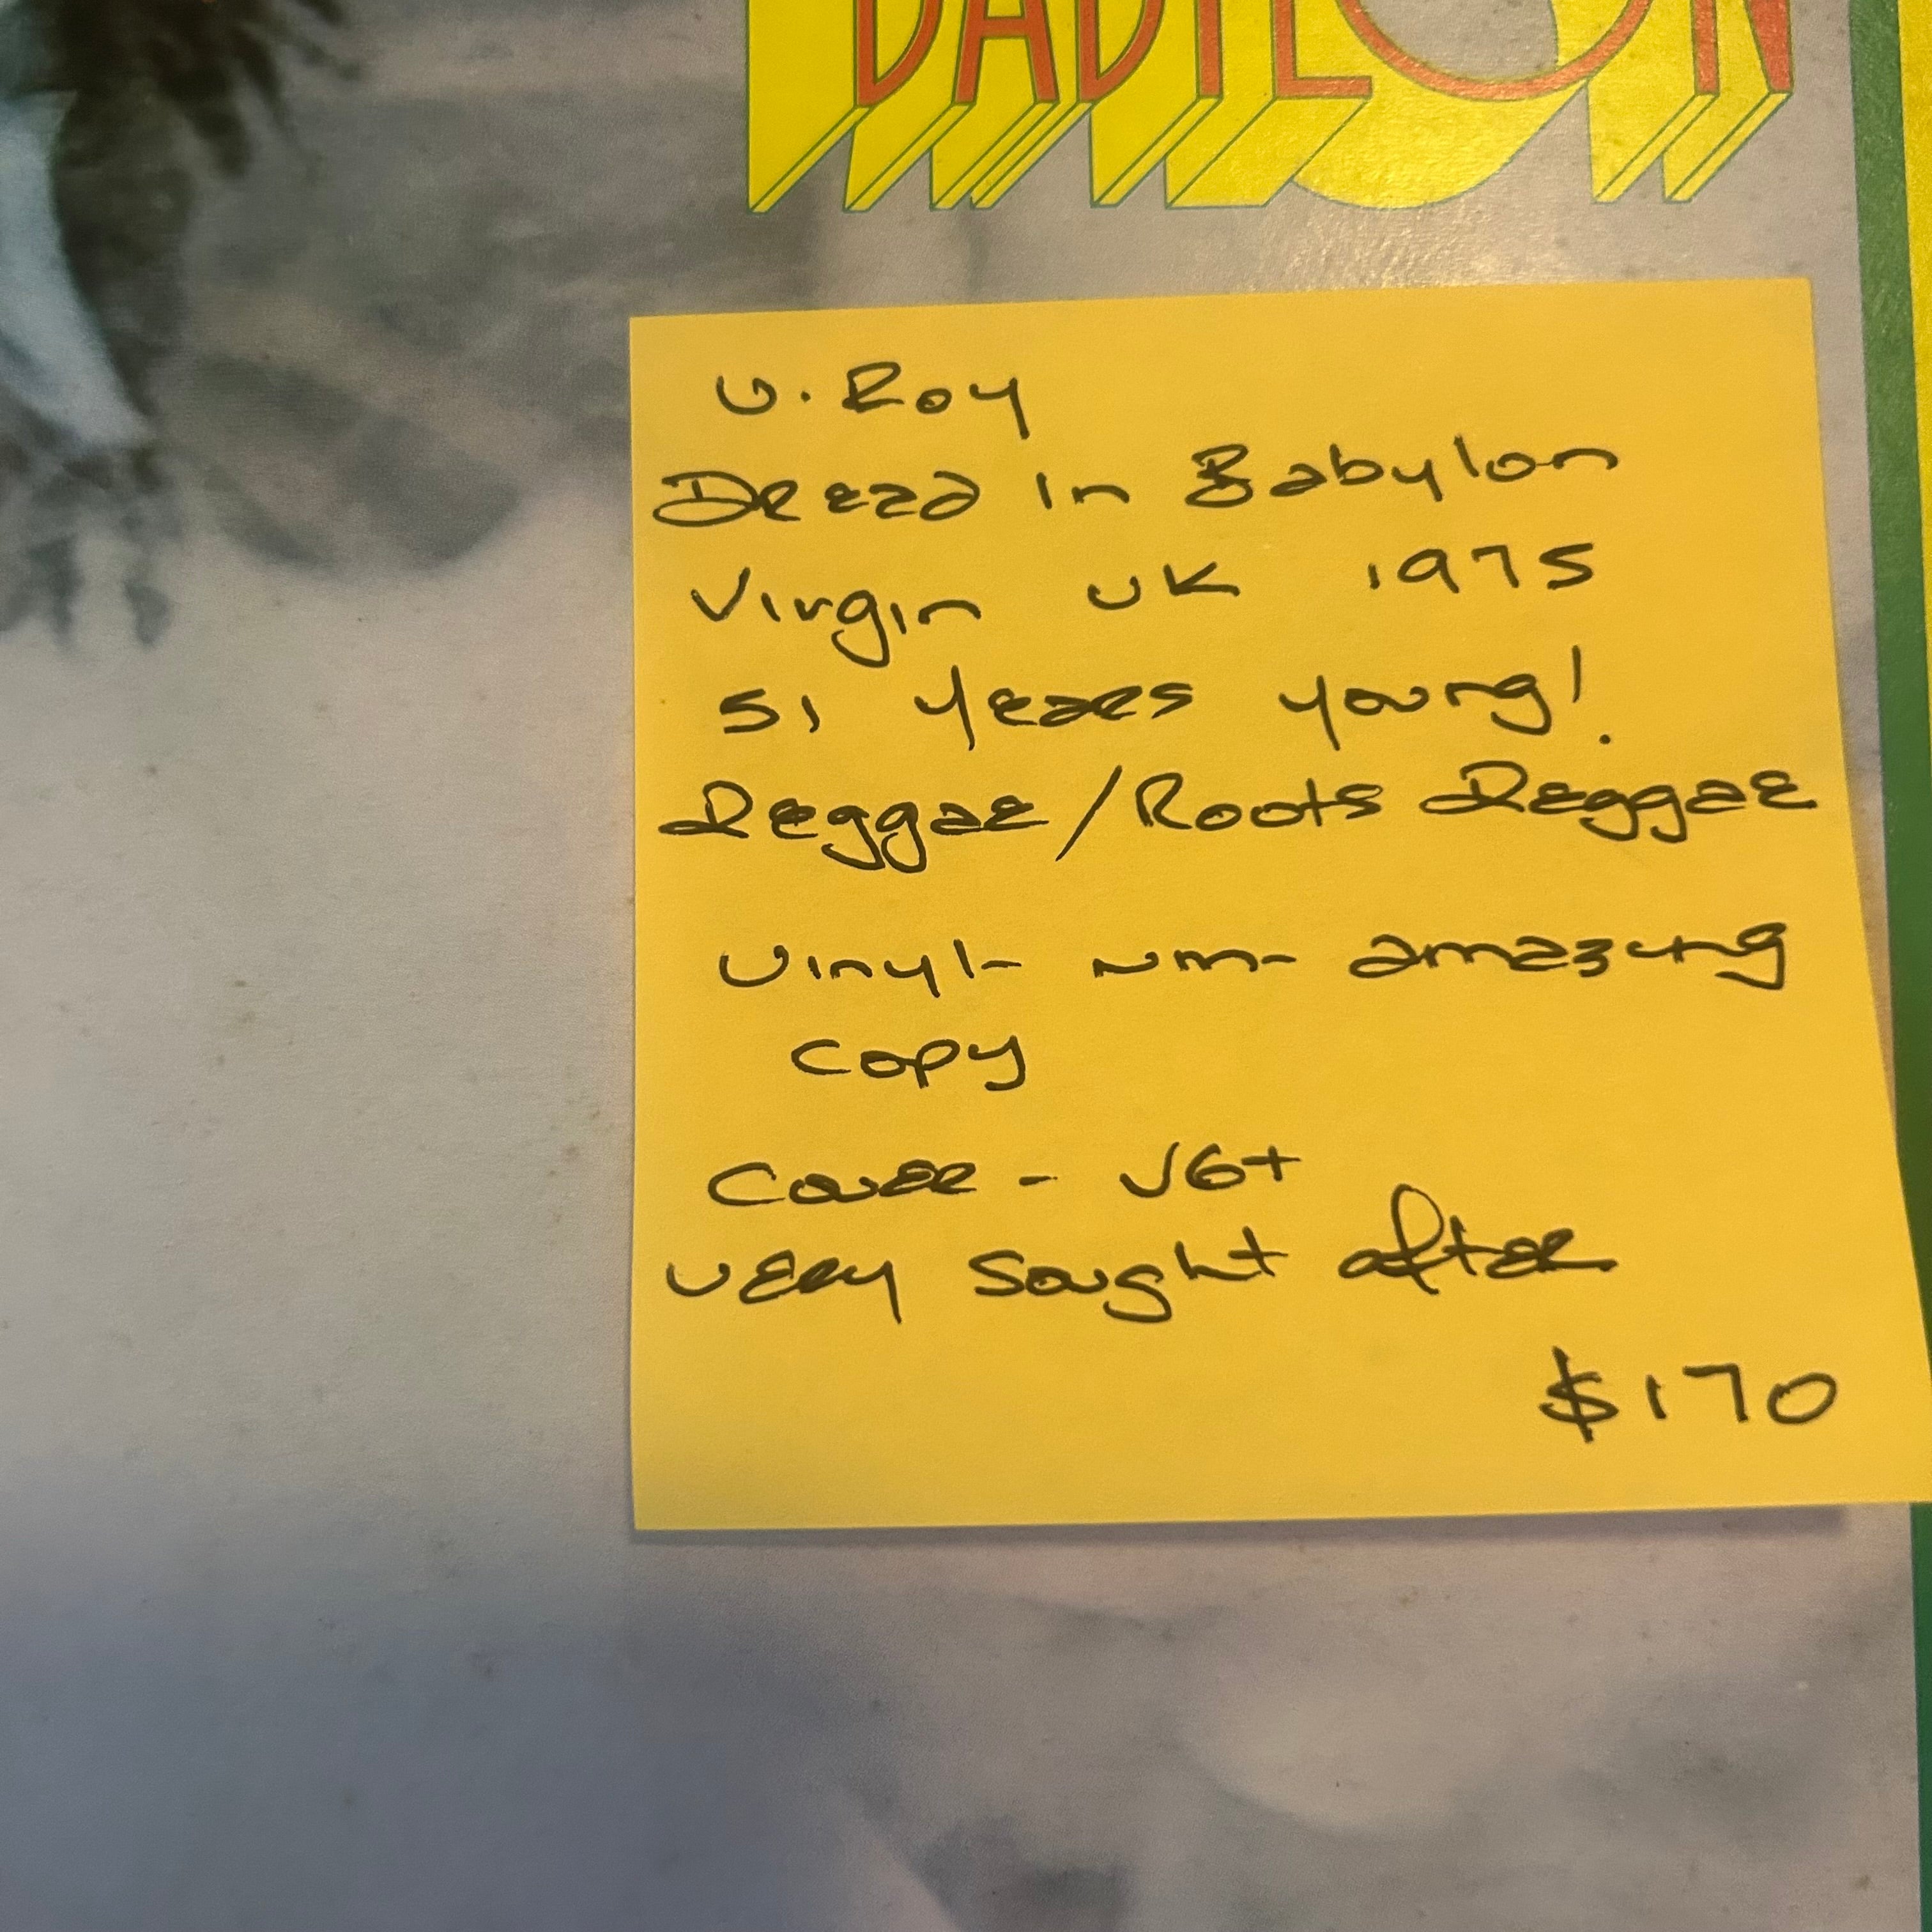 BABYLON
U. Roy
Dread in Babylon
Virgin UK 1975
51 years young!
Reggae/Roots Reggae
Vinyl- NM- amazing
copy
Cover - VG+
very sought after
$170